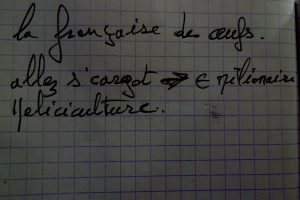 la française des œufs.
allez s'cargot => € milionaire
Héliciculture.